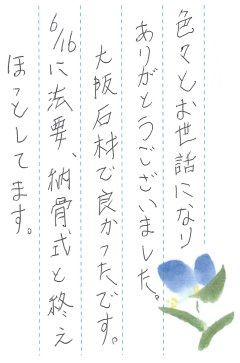 色々とお世話になり
ありがとうございました。
大阪石材で良かったです。
6/16に法要、納骨式と終え
ほっとしてます。